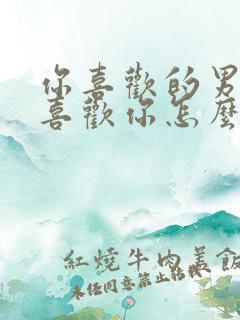 你喜歡的男
喜歡你怎麼
紅燒牛肉美飯
未任同意禁止轉載